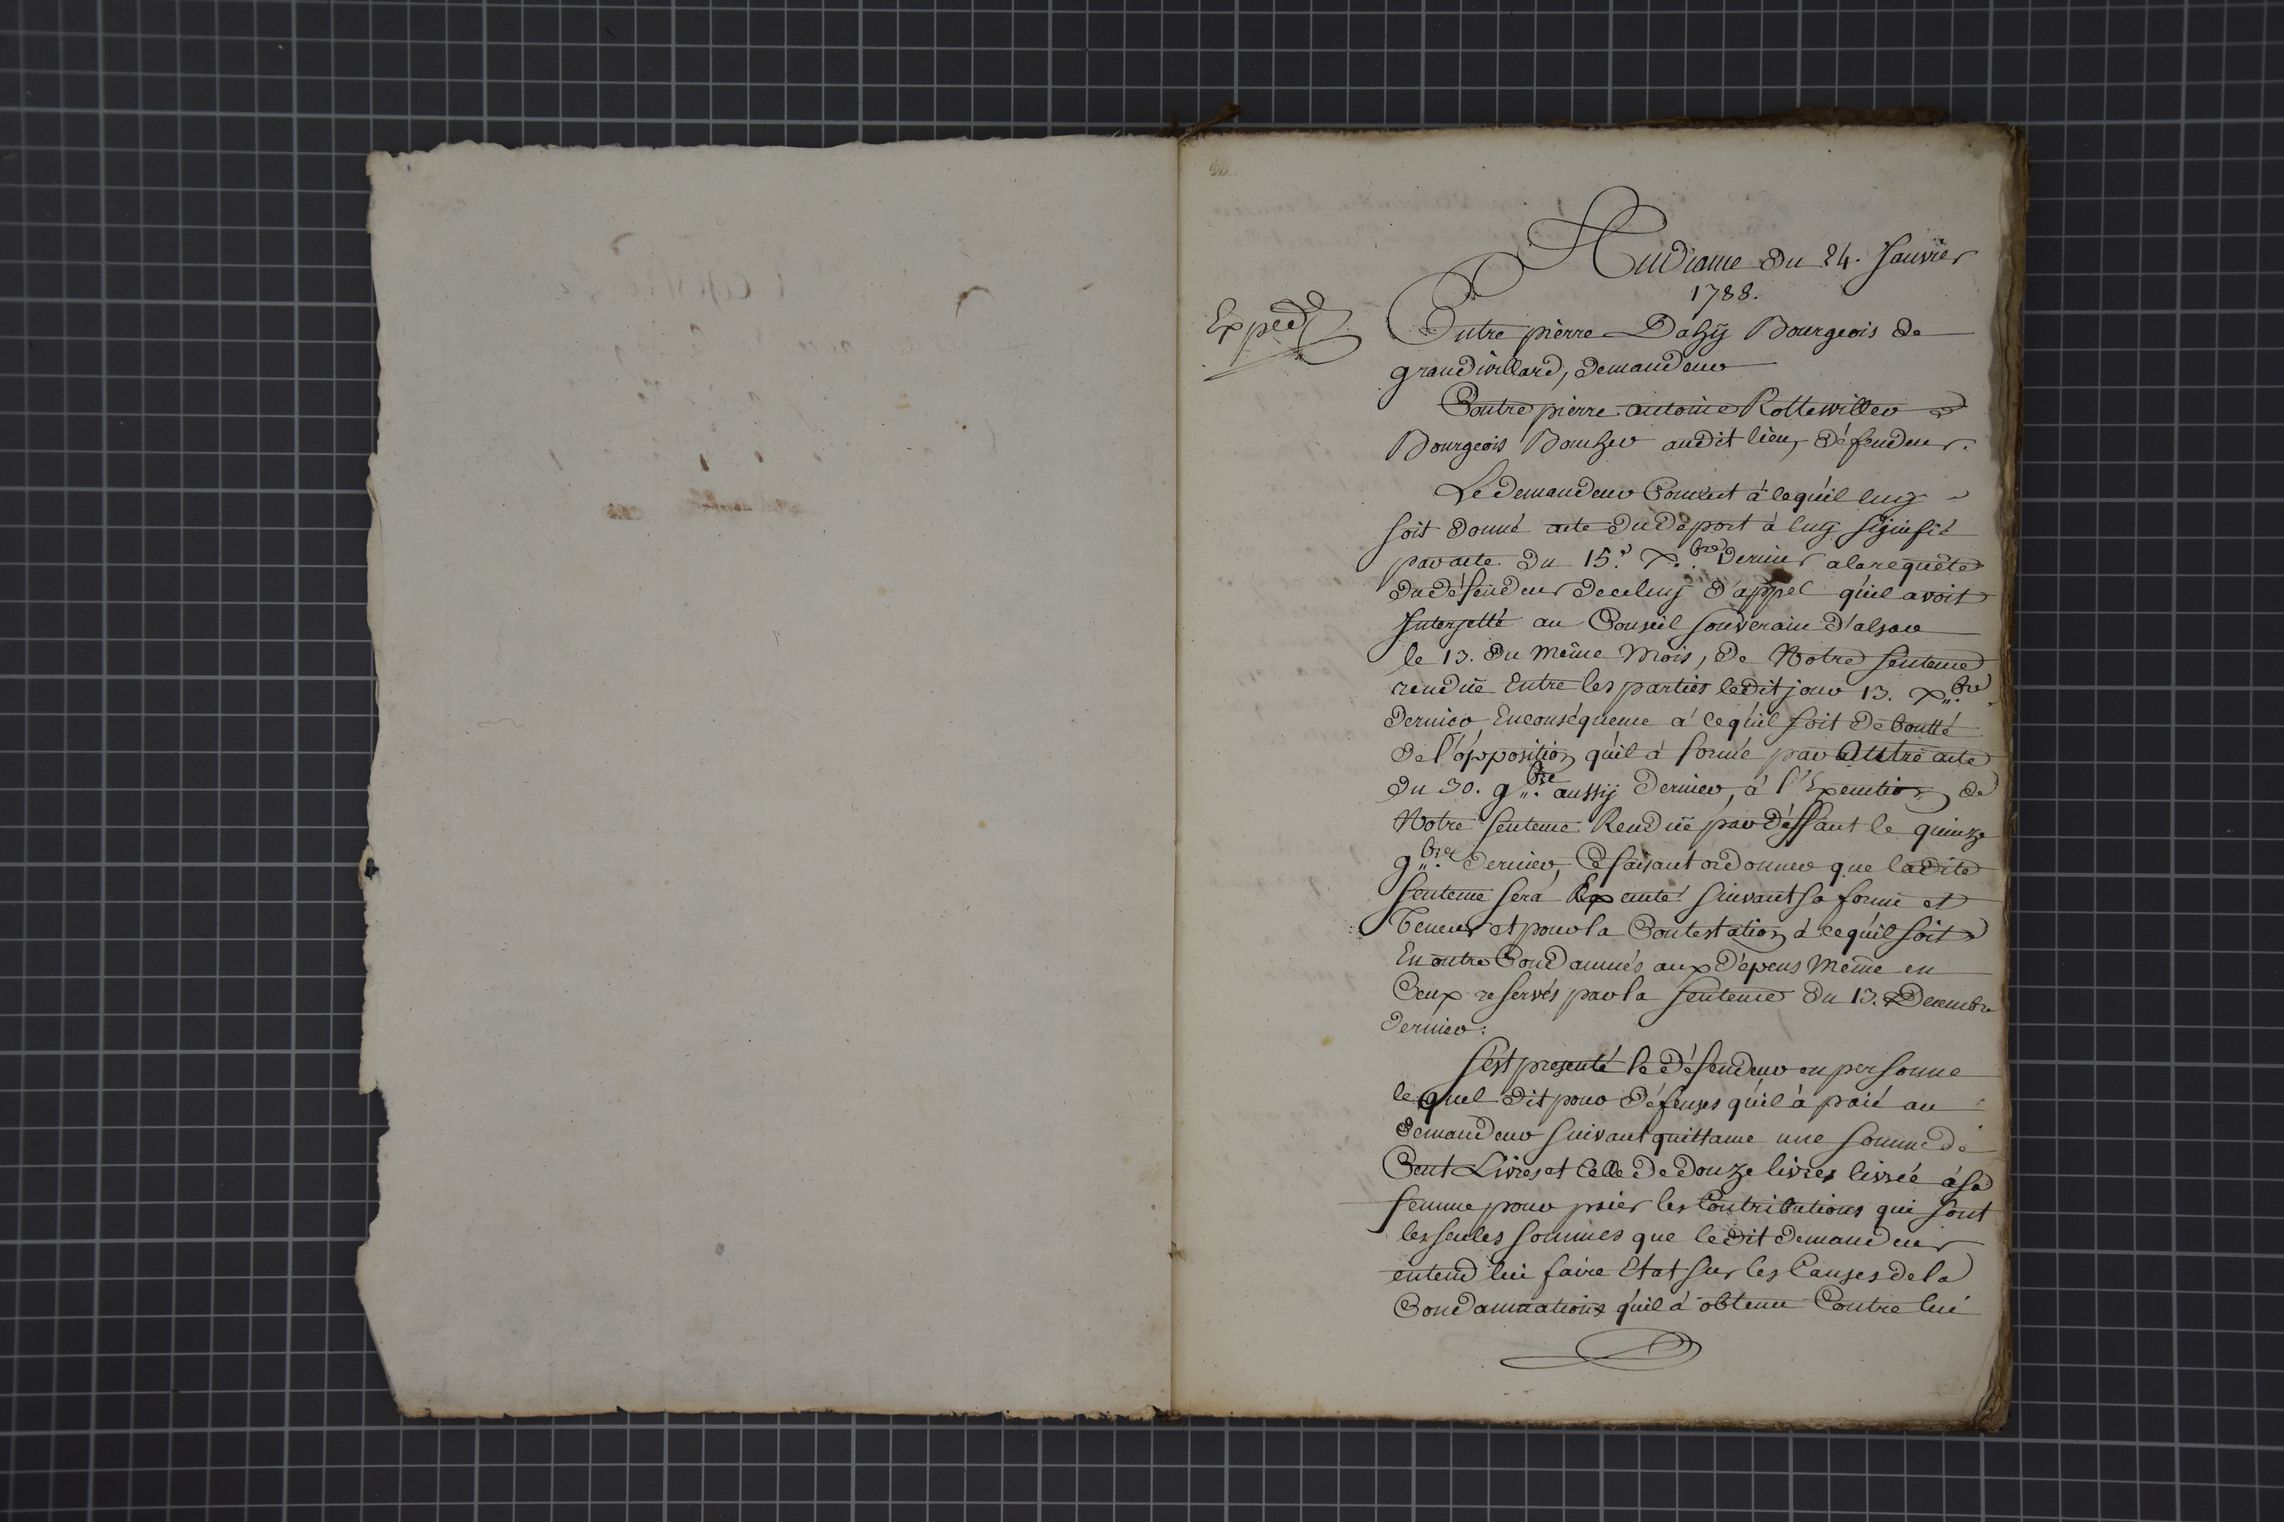 Audiance du 24. Janvier
1788.
Exped
Entre pierre Dahÿ Bourgeois de
grandvillard, demandeur
Contre pierre antoine Rottewiller
Bourgeois Boucher audit lieu, défendeur.
Le demandeur Conclut à ce qu'il luy
soit donné acte du départ à luy signifié
par acte du 15.e X.bre dernier a la requête
du défendeur de celuy d'appel qu'il avoit
Interjetté au Conseil souverain d'alsace
le 13. du même Mois, de Notre sentence
rendüe Entre les parties ledit jour 13. X.bre
dernier, En conséquence à ce qu'il soit déboutté
de l'opposition qu'il à formé par Auttre acte
du 30. 9.bre aussy dernier, à l'Execution de
Notre sentence Rendüe par déffaut le quinze
9.bre dernier, Ce faisant ordonner que ladite
sentence sera Executé suivant sa forme et
teneur et pour la Contestation à ce qu'il soit
En outre Condamnés aux dépens Même en
Ceux reservés par la sentence du 13. Decembre
dernier:
s'est presenté le défendeur en personne
lequel dit pour défenses qu'il à paié au
demandeur suivant quittance une somme de
Cent Livres et Celle de douze livres livrée à sa
femme pour paier les Contributions qui sont
les seules sommes que ledit demandeur
entend lui faire Etat sur les Causes de la
Condamnations qu'il à obtenu Contre lui